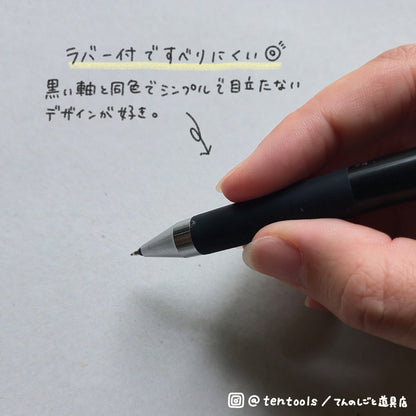 ラバー付ですべりにくい◎
黒い軸と同色でシンプルで目立たない
デザインが好き。
@tentools/てんのしごと道具店